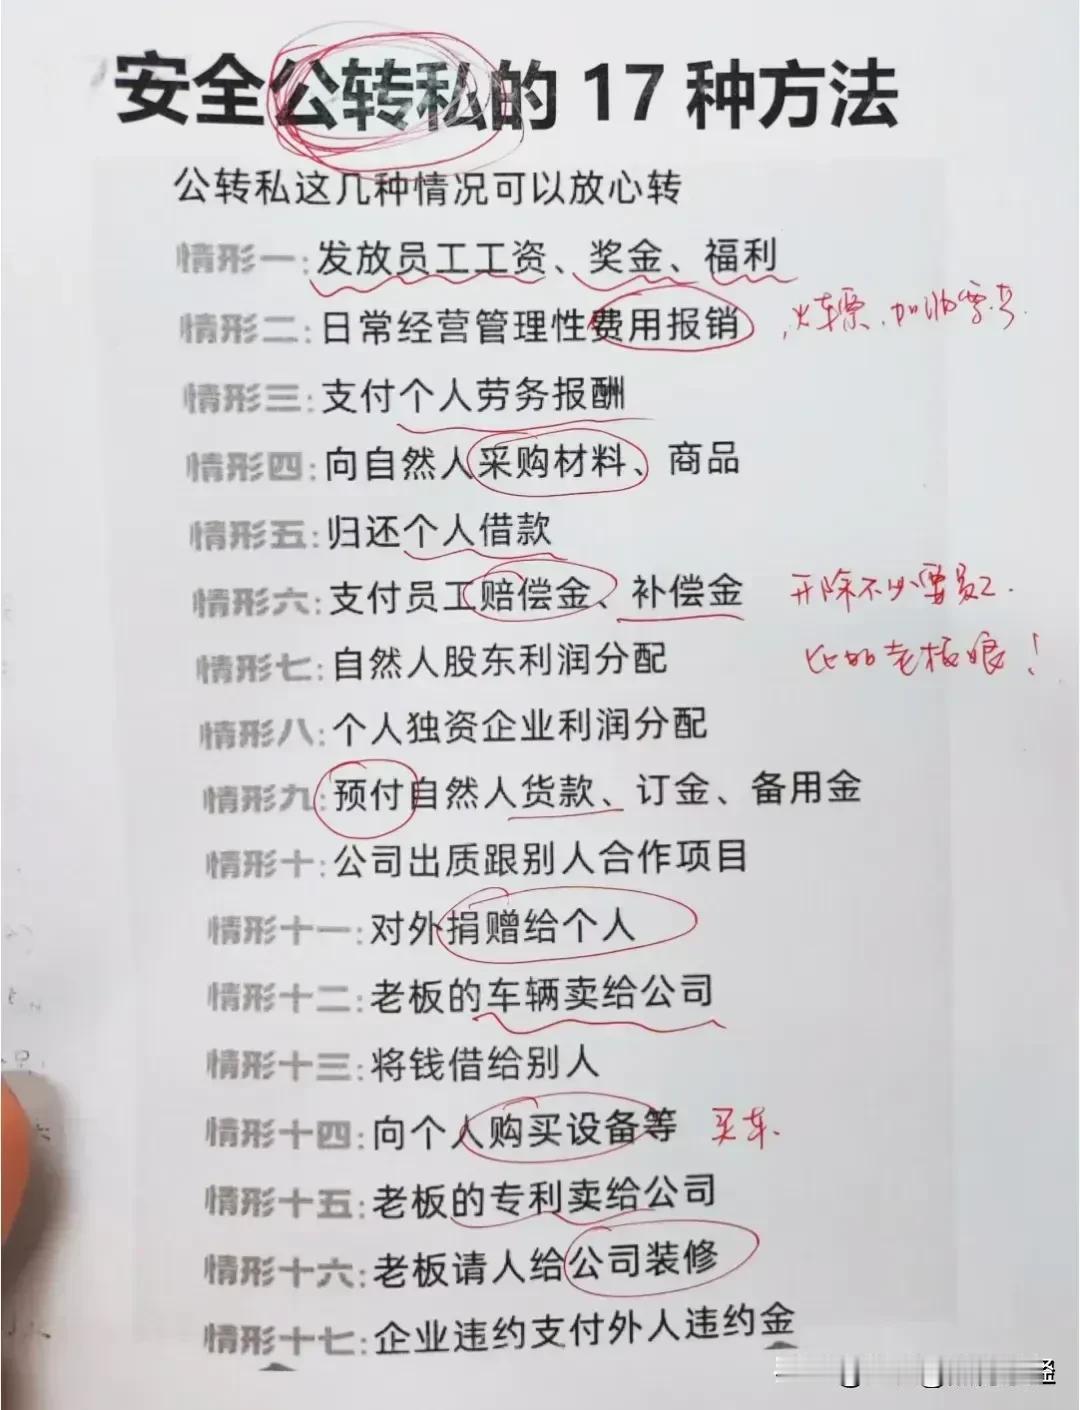 安全公转私的 17 种方法
公转私这几种情况可以放心转
情形一:发放员工工资、奖金、福利
情形二:日常经营管理性费用报销 火车票、加油票等
情形三:支付个人劳务报酬
情形四:向自然人采购材料、商品
情形五:归还个人借款
情形六:支付员工赔偿金、补偿金 开除不必要员工.
比如老板娘!
情形七:自然人股东利润分配
情形八:个人独资企业利润分配
情形九:预付自然人货款、订金、备用金
情形十:公司出质跟别人合作项目
情形十一:对外捐赠给个人
情形十二:老板的车辆卖给公司
情形十三:将钱借给别人
情形十四:向个人购买设备等 买车.
情形十五:老板的专利卖给公司
情形十六:老板请人给公司装修
情形十七:企业违约支付外人违约金